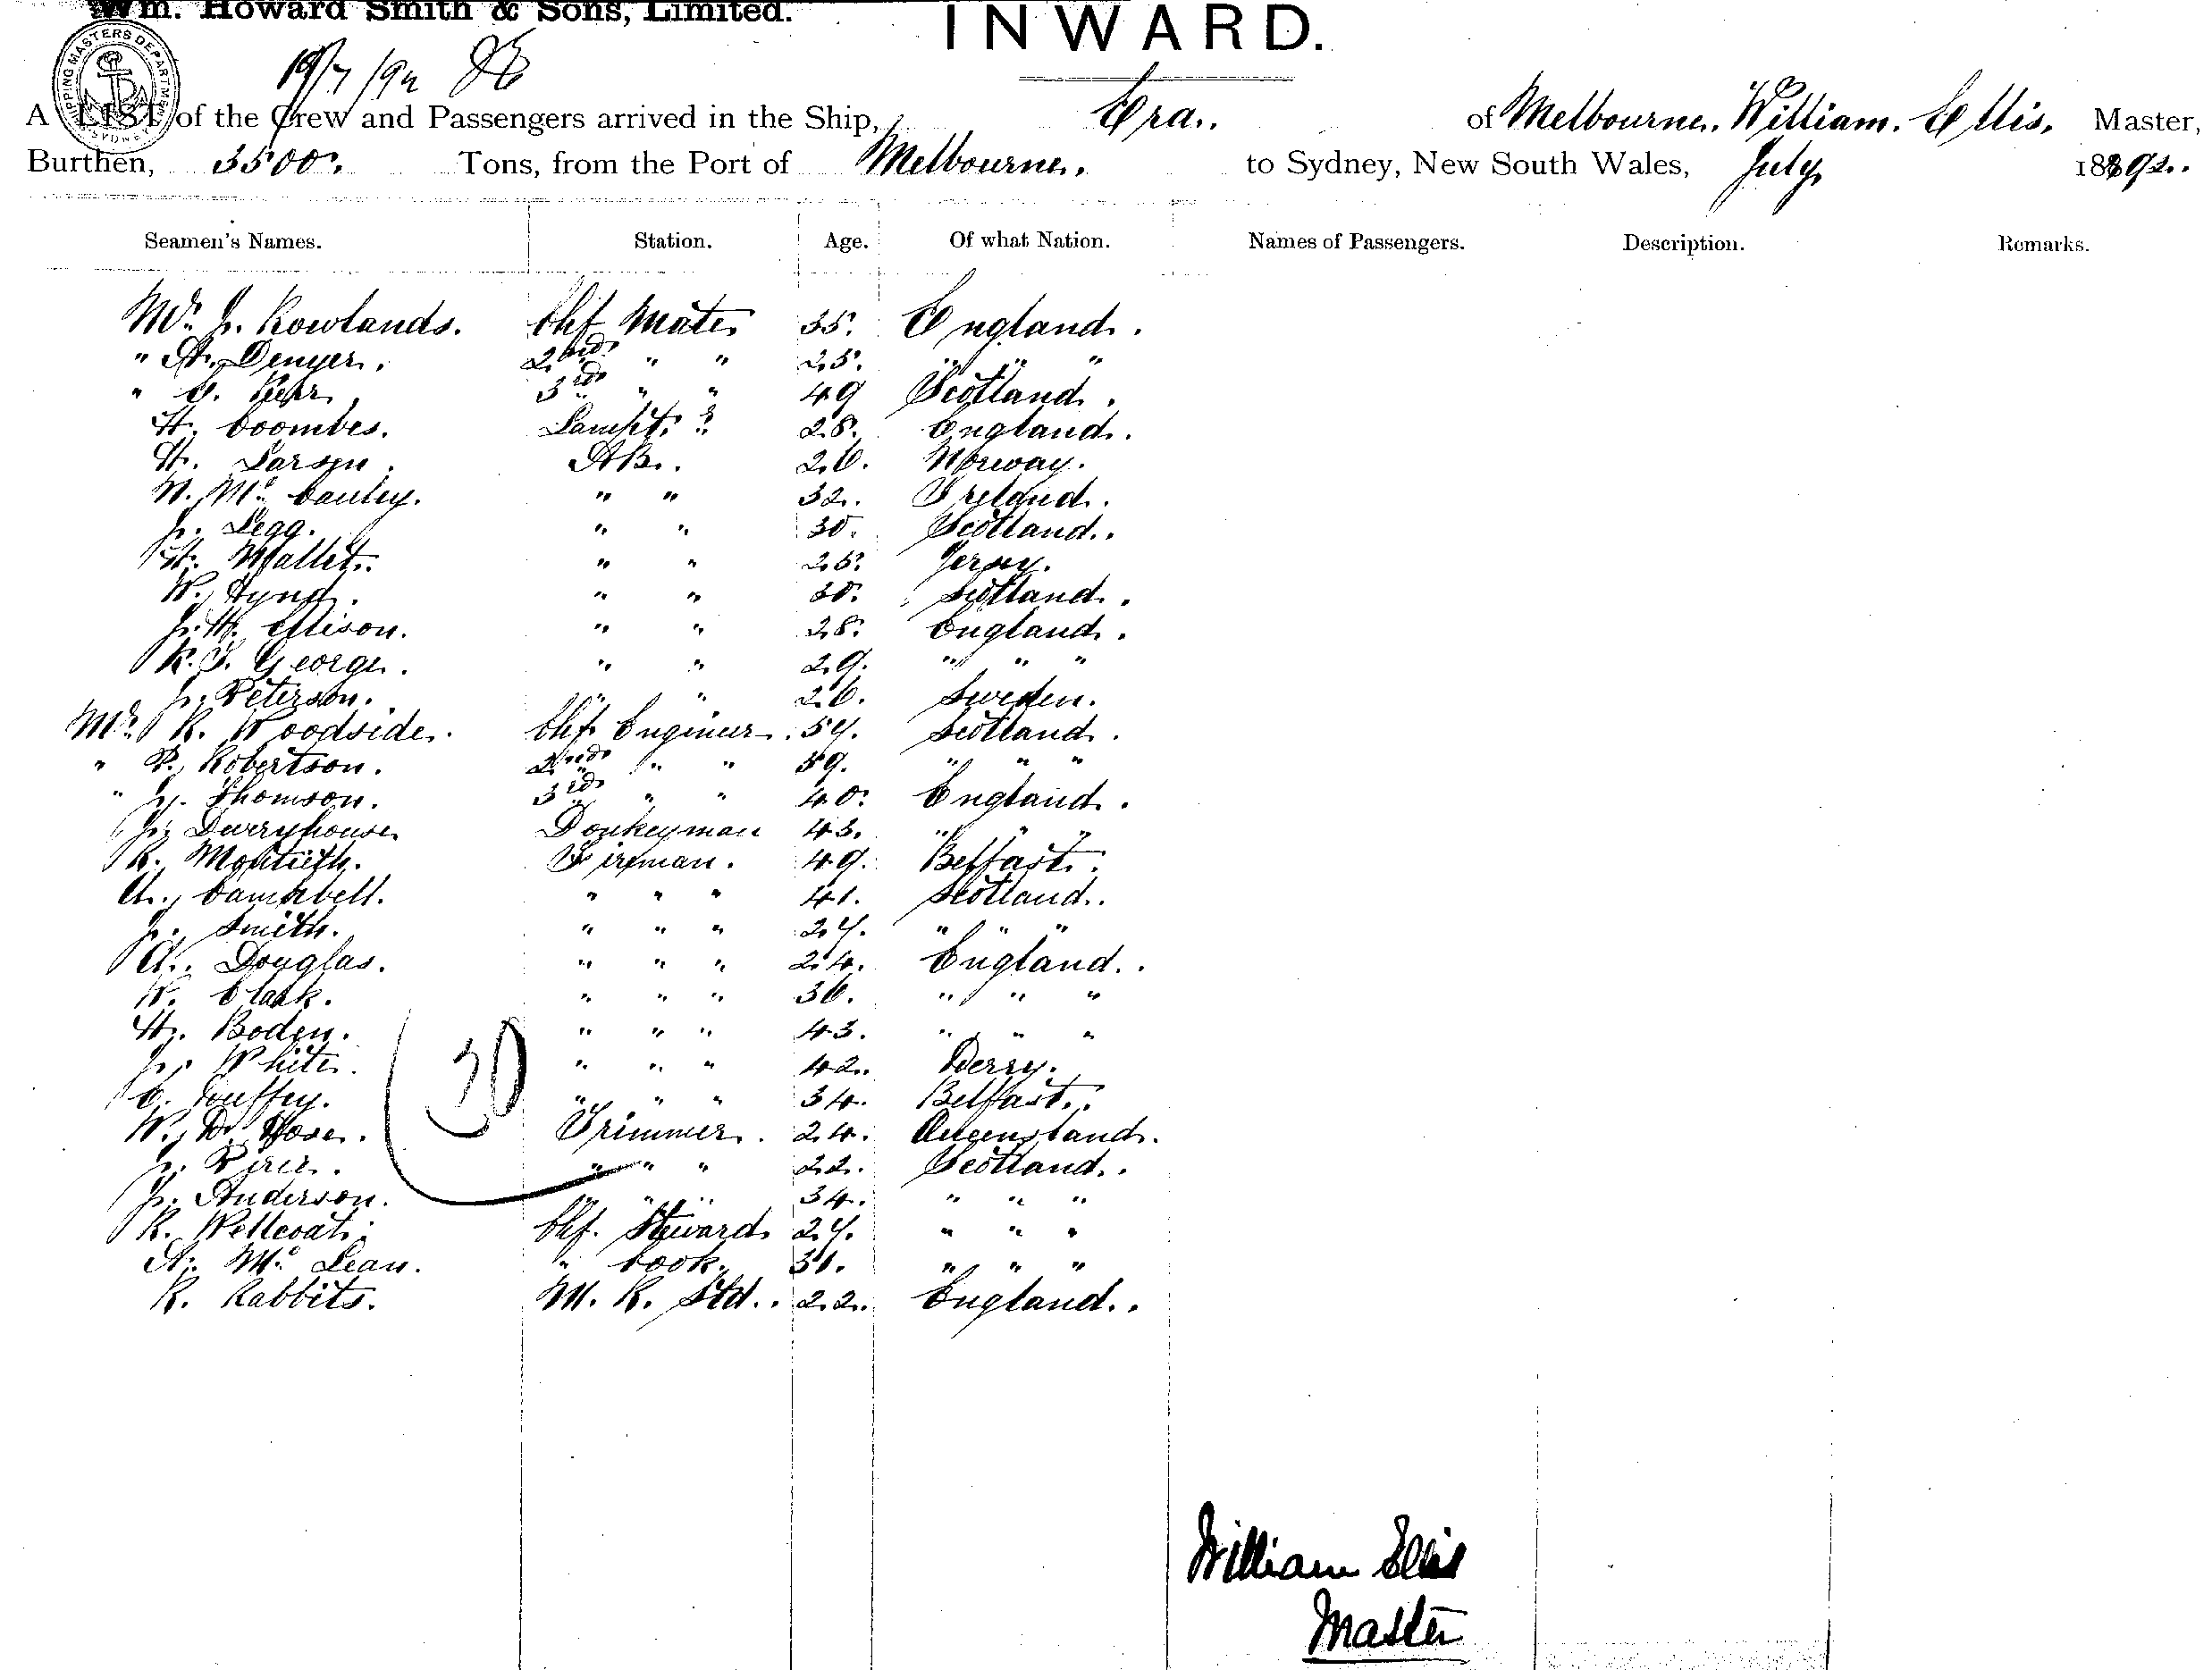 Wm. Howard Smith & Sons, Limited.
INWARD.
19/7/92
SHIPPING MASTERS DEPARTMENT SYDNEY
A LIST of the Crew and Passengers arrived in the Ship, Era. of Melbourne. William. Ellis. Master,
Burthen, 3500. Tons, from the Port of Melbourne. to Sydney, New South Wales, July 1892.
Seamen's Names. Station. Age. Of what Nation. Names of Passengers. Description. Remarks.
Mr. J. Rowlands. Chf Mate. 35. England.
" A. Denyer. 2nd " " 25. " " "
" Kerr. 3rd " " 49 Scotland.
H. Coombes. Lampt. 28. England.
H. Larsen. AB. 26. Norway.
N. Mc. Cauley. " " 32. Ireland.
J. Legg. " " 30. Scotland.
H. Mallet. " " 25. Jersey.
W. Hynd. " " 30. Scotland.
J. H. Ellison. " " 28. England.
R. J. George. " " 29. " " "
J. Peterson. " " 26. Sweden.
Mr. R. Woodside. Chf. Engineer. 54. Scotland.
" P. Robertson. 2nd " " 39. " " "
" J. Thomson. 3rd " " 40. England.
J. Derryhouse Donkeyman 43. " " "
R. Montieth. Fireman. 49. Belfast.
A. Campbell. " " " 41. Scotland.
J. Smith. " " " 24. " " "
A. Douglas. " " " 24. England.
W. Clark. " " " 36. " " "
H. Boden. " " " 43. " " "
J. White. " " " 42. Derry.
C. Duffey. " " " 34. Belfast.
W. D. Hose. Trimmer. 24. Queensland.
J. Pirie. " " " 22. Scotland.
J. Anderson. " " " 34. " " "
R. Wellcoat. Chf. Steward. 24. " " "
A. Mc. Lean. " Cook. 31. " " "
R. Rabbits. M. R. Std. 22. England.
30
William Ellis
Master